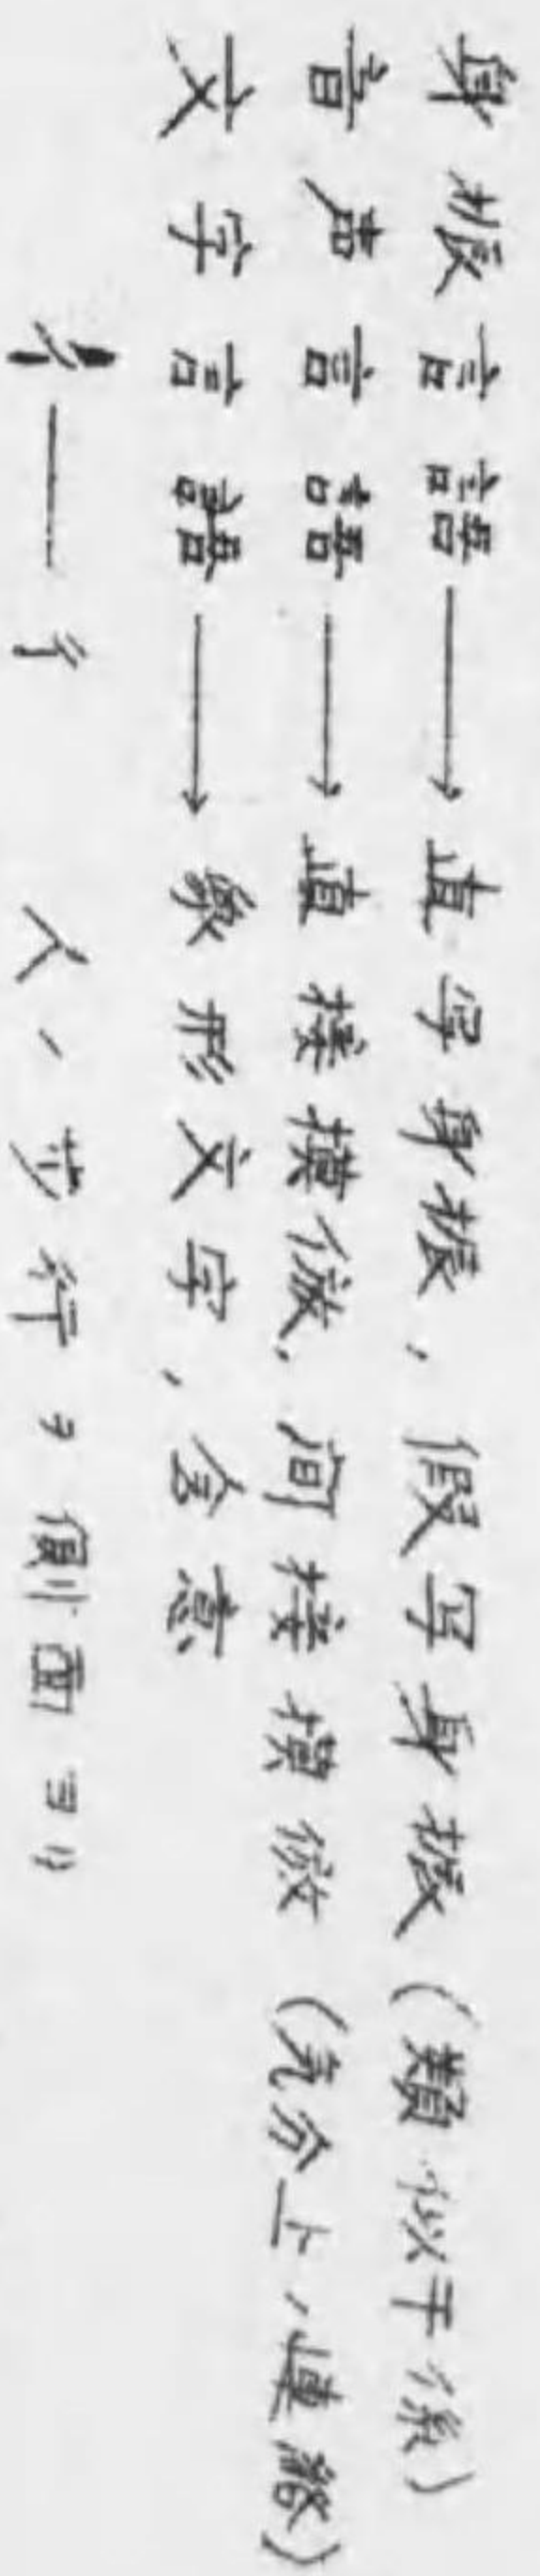 身振言語→直写身振，仮写身振(類似干係)
音声言語→直接摸倣，间接摸倣(気分上ノ連絡)
文字言語→象形文字，会意
彳—彳 人ノ歩行ヲ側面ヨリ